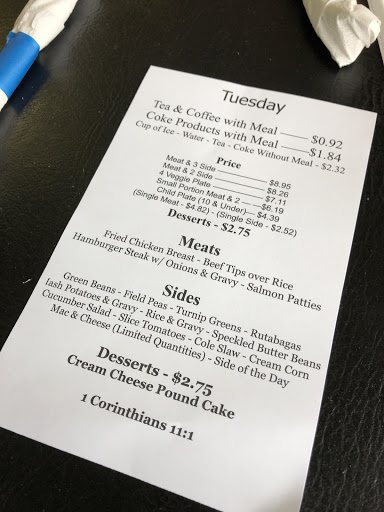 Tuesday
Tea & Coffee with Meal —— $0.92
Coke Products with Meal —— $1.84
Cup of Ice - Water - Tea - Coke Without Meal - $2.32
Price
Meat & 3 Side —— $8.95
Meat & 2 Side —— $8.26
4 Veggie Plate —— $7.11
Small Portion Meat & 2 —— $6.19
Child Plate (10 & Under)— $4.39
(Single Meat - $4.82) - (Single Side - $2.52)
Desserts - $2.75
Meats
Fried Chicken Breast - Beef Tips over Rice
Hamburger Steak w/ Onions & Gravy - Salmon Patties
Sides
Green Beans - Field Peas - Turnip Greens - Rutabagas
Iash Potatoes & Gravy - Rice & Gravy - Speckled Butter Beans
Cucumber Salad - Slice Tomatoes - Cole Slaw - Cream Corn
Mac & Cheese (Limited Quantities) - Side of the Day
Desserts - $2.75
Cream Cheese Pound Cake
1 Corinthians 11:1